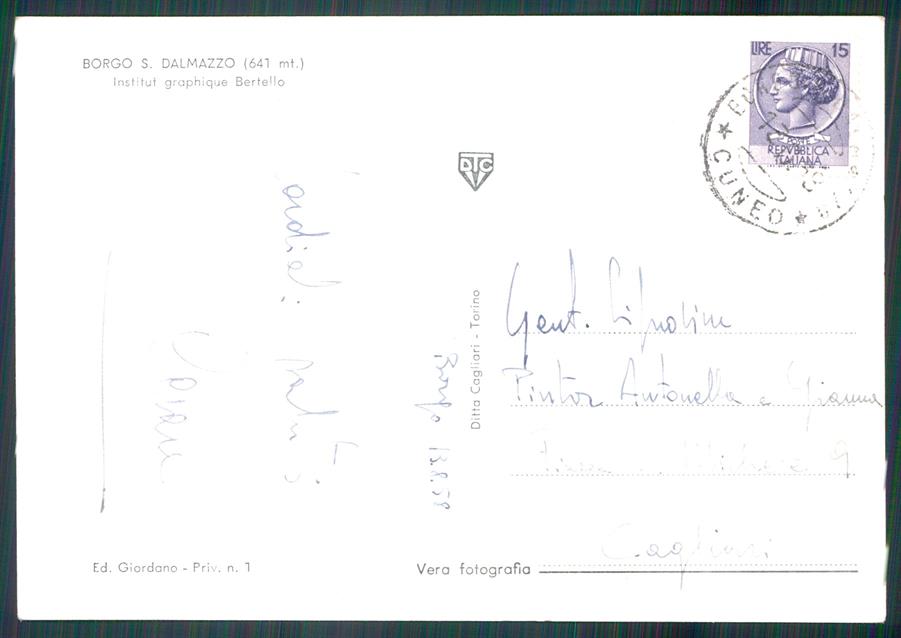 BORGO S. DALMAZZO (641 mt.)
Institut graphique Bertello
LIRE 15
POSTE
REPVBBLICA
ITALIANA
★ CUNEO ★
DTC
Cordiali saluti
Borgo 13.8.58
Ditta Cagliari - Torino
Gent. Signorine
Pintor Antonella e Gianna
9
Cagliari
Ed. Giordano - Priv. n. 1
Vera fotografia